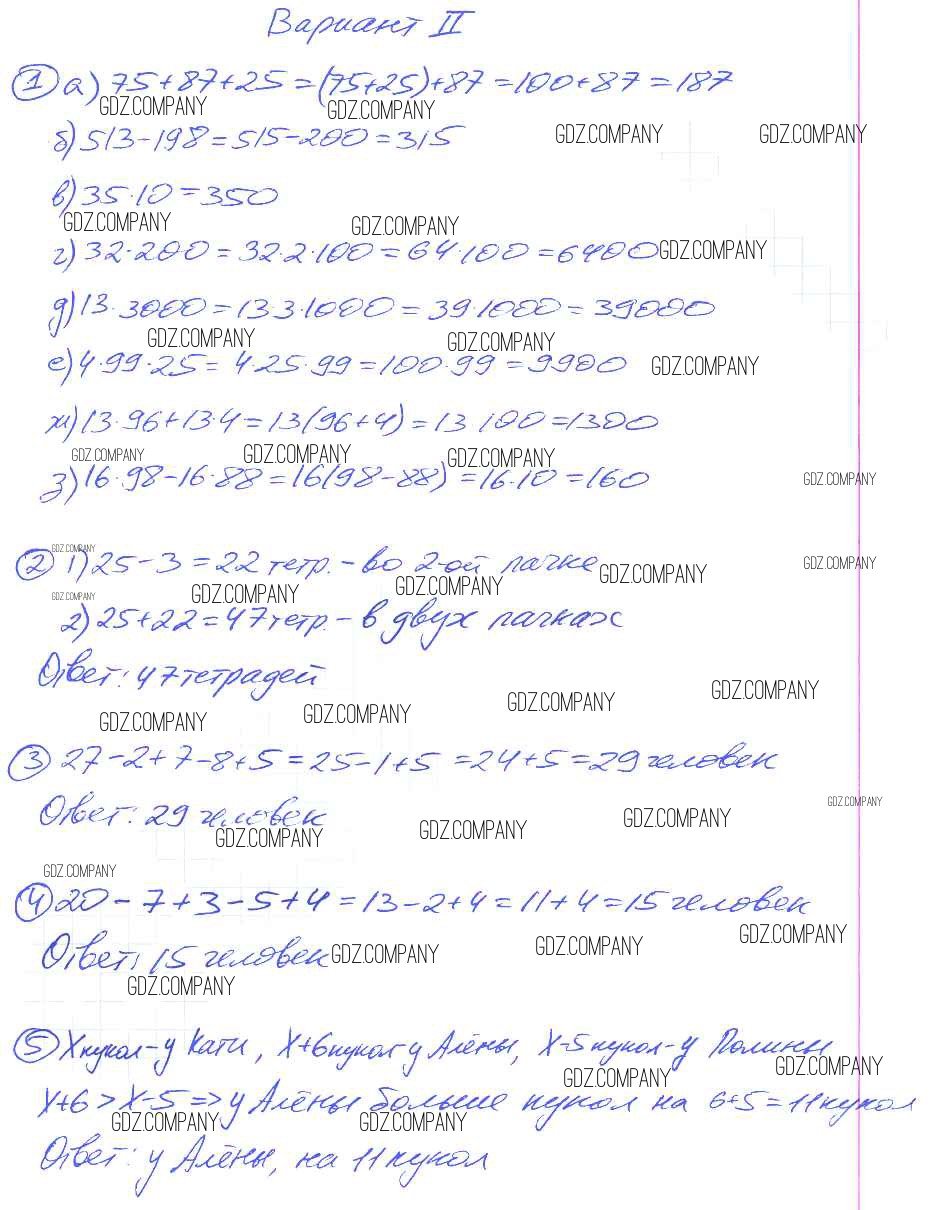 Вариант II
1 а) 75+87+25=(75+25)+87=100+87=187
GDZ.COMPANY GDZ.COMPANY
б) 513-198=515-200=315 GDZ.COMPANY GDZ.COMPANY
в) 35·10=350
GDZ.COMPANY GDZ.COMPANY
г) 32·200=32·2·100=64·100=6400 GDZ.COMPANY
д) 13·3000=13·3·1000=39·1000=39000
GDZ.COMPANY GDZ.COMPANY
е) 4·99·25=4·25·99=100·99=9900 GDZ.COMPANY
ж) 13·96+13·4=13(96+4)=13·100=1300
GDZ.COMPANY GDZ.COMPANY GDZ.COMPANY
з) 16·98-16·88=16(98-88)=16·10=160 GDZ.COMPANY
GDZ.COMPANY
2 1) 25-3=22 тетр.-во 2-ой пачке GDZ.COMPANY GDZ.COMPANY
GDZ.COMPANY GDZ.COMPANY GDZ.COMPANY
2) 25+22=47 тетр.-в двух пачках
Ответ: 47 тетрадей
GDZ.COMPANY GDZ.COMPANY GDZ.COMPANY GDZ.COMPANY
3 27-2+7-8+5=25-1+5=24+5=29 человек
Ответ: 29 человек GDZ.COMPANY
GDZ.COMPANY GDZ.COMPANY GDZ.COMPANY
GDZ.COMPANY
4 20-7+3-5+4=13-2+4=11+4=15 человек
Ответ: 15 человек GDZ.COMPANY GDZ.COMPANY GDZ.COMPANY
GDZ.COMPANY
5 X кукол-у Кати, X+6 кукол у Алёны, X-5 кукол-у Полины
GDZ.COMPANY GDZ.COMPANY
X+6>X-5=>у Алёны больше кукол на 6+5=11 кукол
GDZ.COMPANY GDZ.COMPANY
Ответ: у Алёны, на 11 кукол